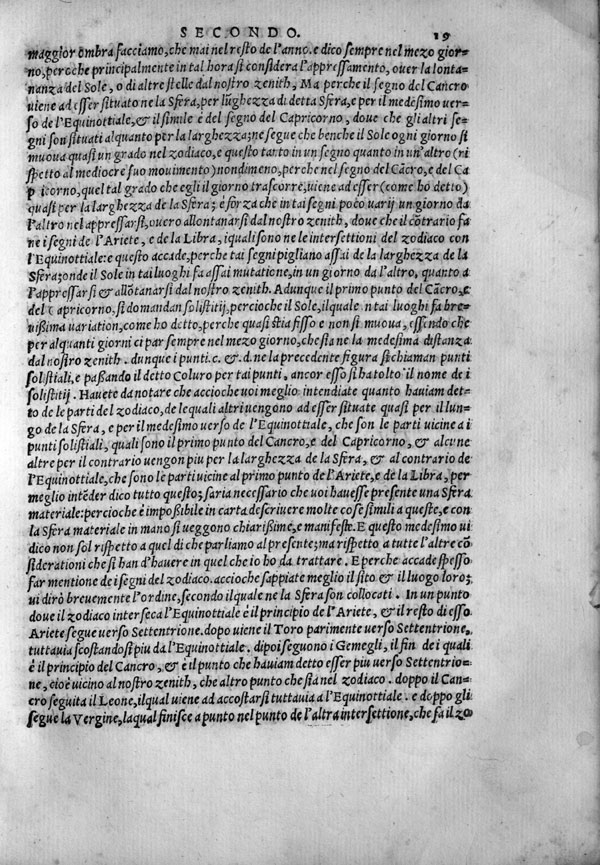 SECONDO. 19
maggior õmbra facciamo, che mai nel resto de l'anno. e dico sempre nel mezo gior-
no, percehe principalmente in tal hora si considera l'appressamento, over la lonta-
nanza del Sole, o di altre stelle dal nostro zenith, Ma perche il segno del Cancro
viene ad esser situato ne la Sfera, per lũghezza di detta Sfera, e per il medesimo ver-
so de l'Equinottiale, & il simile è del segno del Capricorno, doue che gli altri se-
gni son situati alquanto per la larghezza; ne segue che benche il Sole ogni giorno si
muoua quasi un grado nel zodiaco, e questo tanto in un segno quanto in un'altro (ri
spetto al mediocre suo mouimento) nondimeno, perche nel segno del Cãcro, e del Ca
p icorno, quel tal grado che egli il giorno trascorre, uiene ad esser (come ho detto)
quasi per la larghezza de la Sfera; è forza che in tai segni poco uarij un giorno da
l'altro nel appressarsi, ouero allontanarsi dal nostro zenith, doue che il cõtrario fa
ne i segni de l'Ariete, e de la Libra, i quali sono ne le intersettioni del zodiaco con
l'Equinottiale: e questo accade, perche tai segni pigliano assai de la larghezza de la
Sfera; onde il Sole in tai luoghi fa assai mutatione, in un giorno da l'altro, quanto a
l'appressarsi & allõtanarsi dal nostro zenith. Adunque il primo punto del Cãcro, e
del Capricorno, si domandan solistitij, percioche il Sole, il quale n tai luoghi fa bre-
uißima uariation, come ho detto, perche quasi stia fisso e non si muoua, essendo che
per alquanti giorni ci par sempre nel mezo giorno, che stia ne la medesima distanza
dal nostro zenith. dunque i punti. c. & .d. ne la precedente figura si chiaman punti
solistiali, e paßando il detto Coluro per tai punti, ancor esso si ha tolto il nome de i
solistitij. Hauete da notare che accioche uoi meglio intendiate quanto hauiam det-
to de le parti del zodiaco, de le quali altri uengono ad esser situate quasi per il lun-
go de la Sfera, e per il medesimo uerso de l'Equinottiale, che son le parti uicine a i
punti solistiali, quali sono il primo punto del Cancro, e del Capricorno, & alcune
altre per il contrario uengon piu per la larghezza de la Sfera, & al contrario de
l'Equinottiale, che sono le parti uicine al primo punto de l'Ariete, e de la Libra, per
meglio intẽder dico tutto questo; saria necessario che uoi hauesse presente una Sfera
materiale: percioche è impoßibile in carta descriuere molte cose simili a queste, e con
la Sfera materiale in mano si ueggono chiarißime, e manifeste. E questo medesimo ui
dico non sol rispetto a quel di che parliamo al presente; ma rispetto a tutte l'altre cõ
siderationi che si han d'hauere in quel che io ho da trattare. E perche accade spesso
far mentione de i segni del zodiaco. accioche sappiate meglio il sito & il luogo loro;
ui dirò breuemente l'ordine, secondo il quale ne la Sfera son collocati. In un punto
doue il zodiaco interseca l'Equinottiale è il principio de l'Ariete, & il resto di esso
Ariete segue uerso Settentrione. dopo uiene il Toro parimente uerso Settentrione,
tuttauia scostandosi piu da l'Equinottiale. dipoi seguono i Gemegli, il fin de i quali
è il principio del Cancro, & è il punto che hauiam detto esser piu uerso Settentrio-
ne, cioè uicino al nostro zenith, che altro punto che sia nel zodiaco. doppo il Can-
cro seguita il Leone, il qual uiene ad accostarsi tuttauia a l'Equinottiale. e doppo gli
segue la Vergine, la qual finisce a punto nel punto de l'altra intersettione, che fa il zo